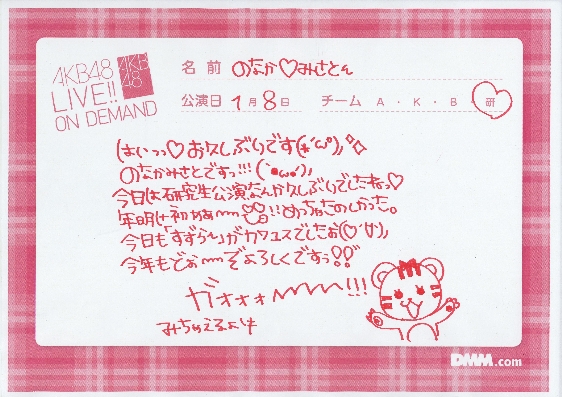 AKB48
LIVE!!
ON DEMAND
AKB
48
名前 のなか♡みさとん
公演日 1月8日 チーム A・K・B・研
はいっっ♡お久しぶりです(*´ω`)
のなかみさとですっ!!!(`・ω・´)
今日は研究生公演なんか久しぶりでしたねっ♡
年明け初めぁ〜〜!!めっちゃたのしかった。
今日も「すずらん」がカワユスでしたお(♡´∀`)
今年もどぉ〜〜ぞよろしくですっ!!
ガオォォ〜〜〜!!!
みちゃえるより
DMM.com